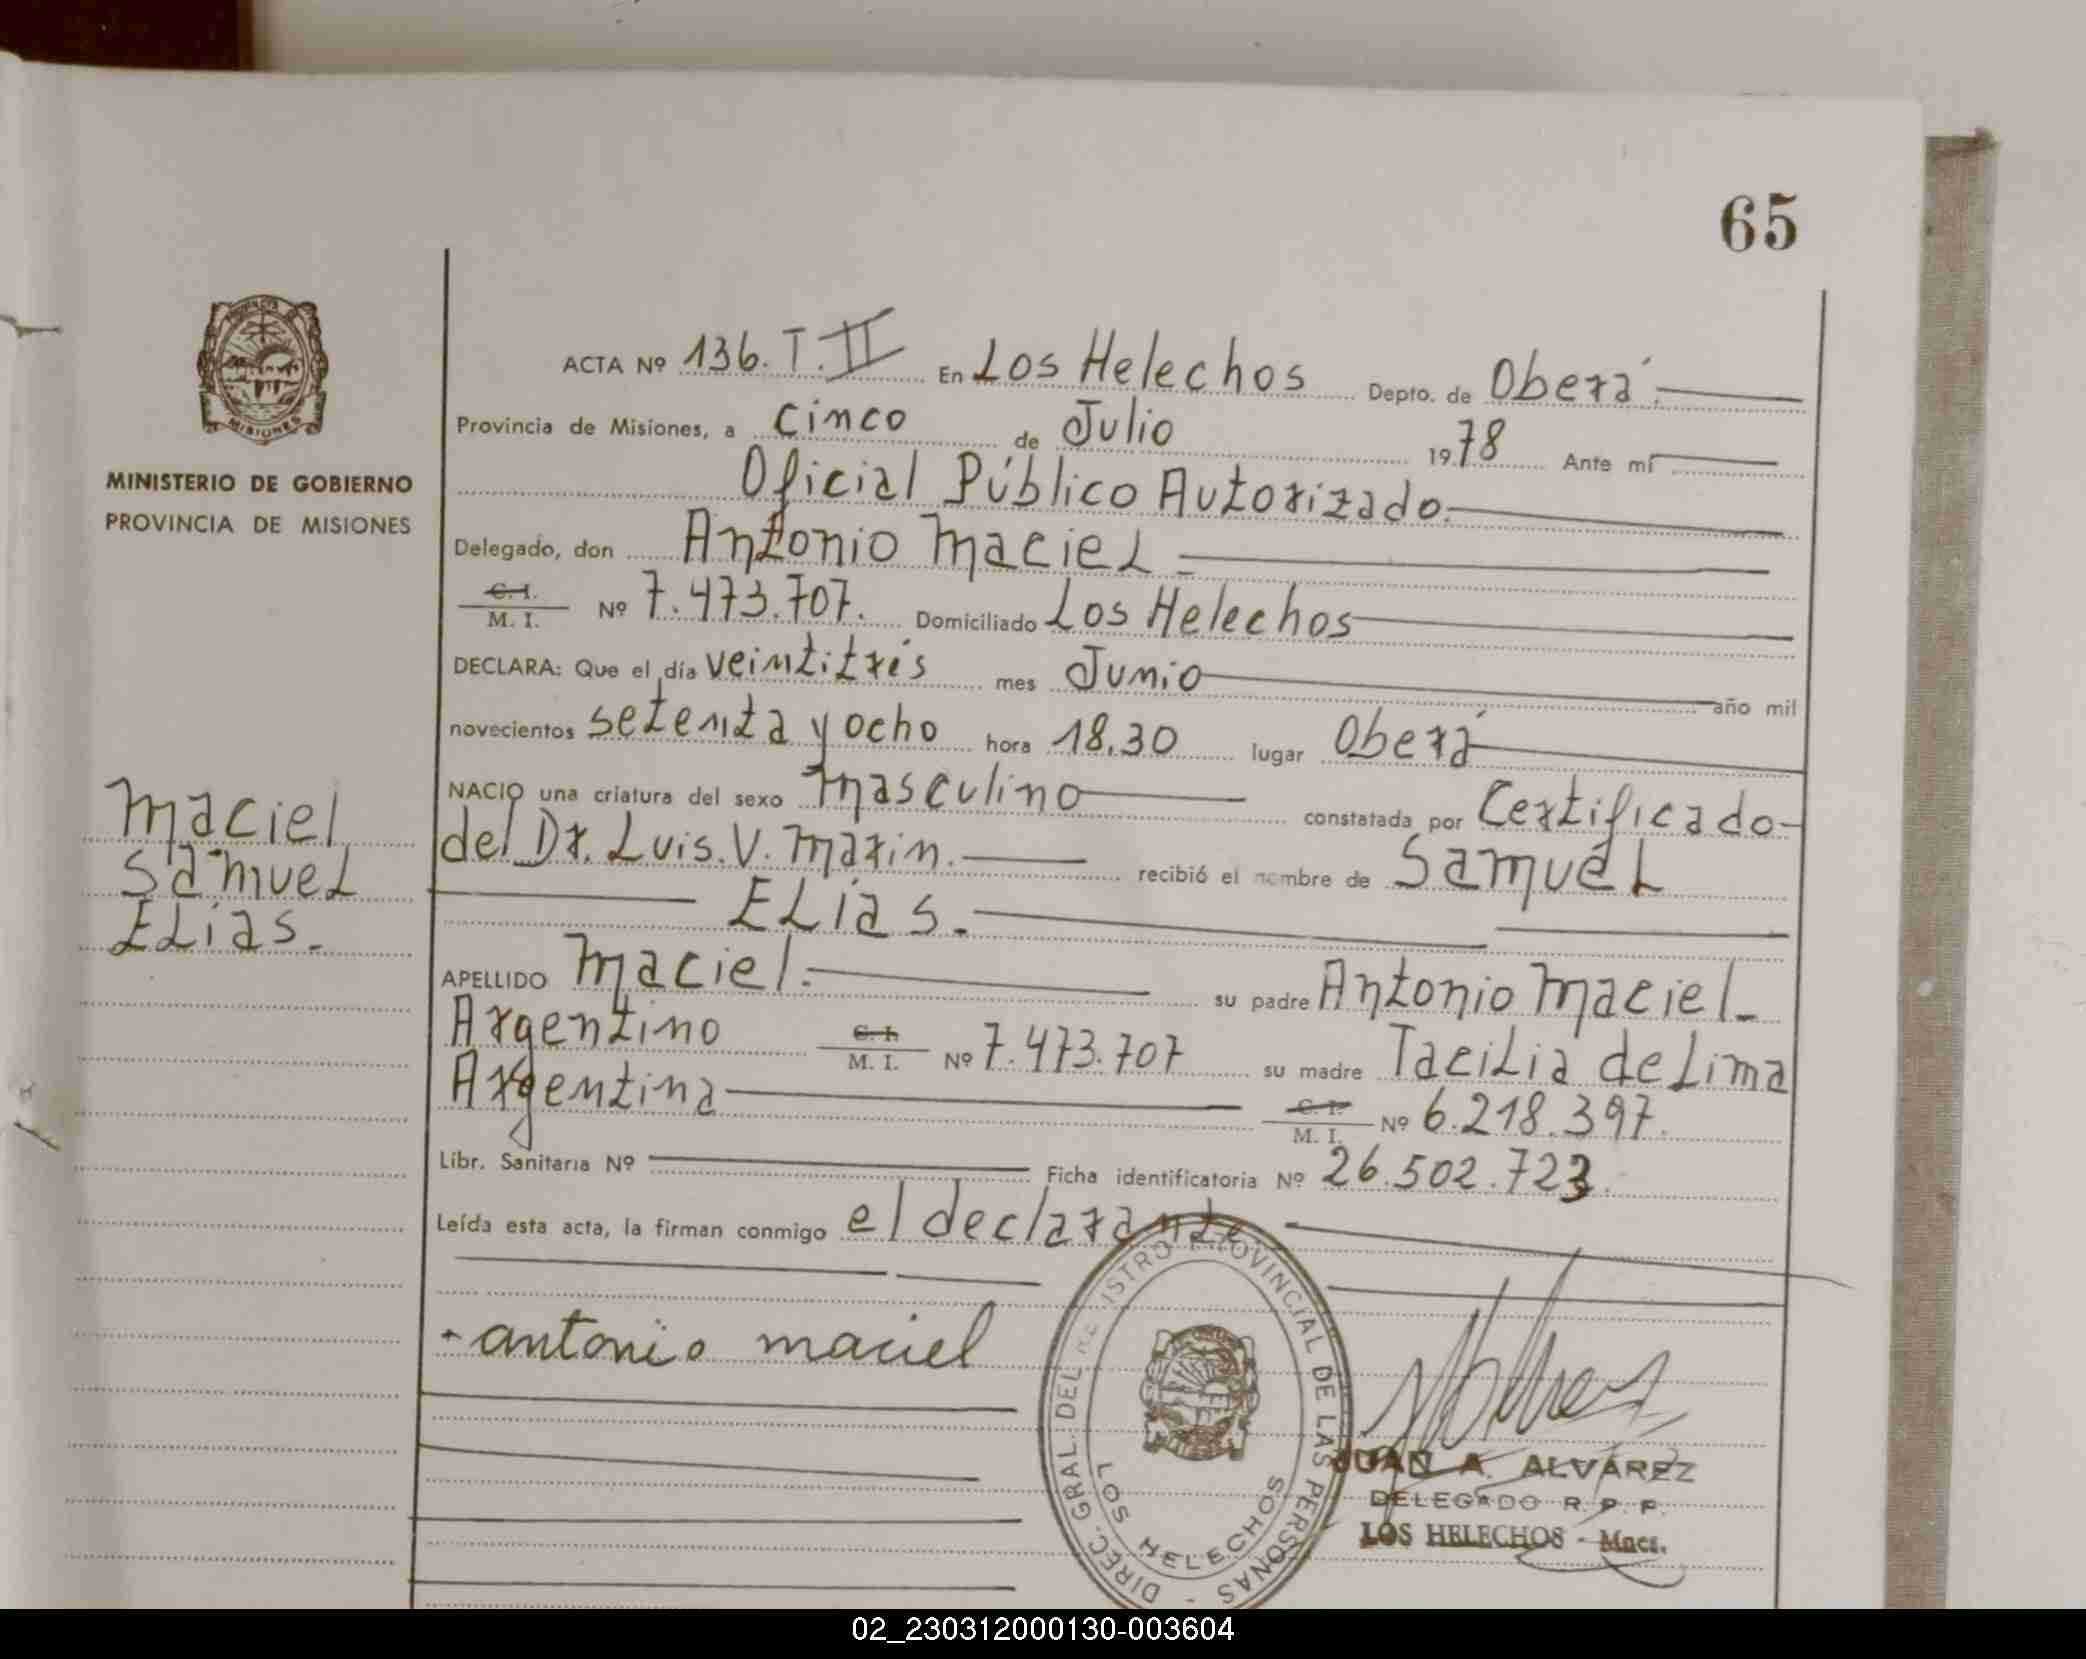 65
ACTA Nº 136. T. II En Los Helechos Depto. de Oberá.
Provincia de Misiones, a cinco de Julio 1978 Ante mí
MINISTERIO DE GOBIERNO
PROVINCIA DE MISIONES
Oficial Público Autorizado.
Delegado, don Antonio Maciel
C. I. / M. I. Nº 7.473.707. Domiciliado Los Helechos
DECLARA: Que el día veintitrés mes Junio año mil
novecientos setenta y ocho hora 18.30 lugar Oberá
Maciel
Samuel
Elias.
NACIO una criatura del sexo masculino constatada por Certificado
del Dr. Luis. V. Marin. recibió el nombre de Samuel
Elias.
APELLIDO Maciel. su padre Antonio Maciel
Argentino C. I. / M. I. Nº 7.473.707 su madre Tacilia de Lima
Argentina C. I. / M. I. Nº 6.218.397.
Libr. Sanitaria Nº Ficha identificatoria Nº 26.502.723.
Leída esta acta, la firman conmigo el declarante
antonio maciel
DIREC. GRAL. DEL REGISTRO PROVINCIAL DE LAS PERSONAS
LOS HELECHOS
JUAN A. ALVAREZ
DELEGADO R. P. P.
LOS HELECHOS - Mnes.
02_230312000130-003604